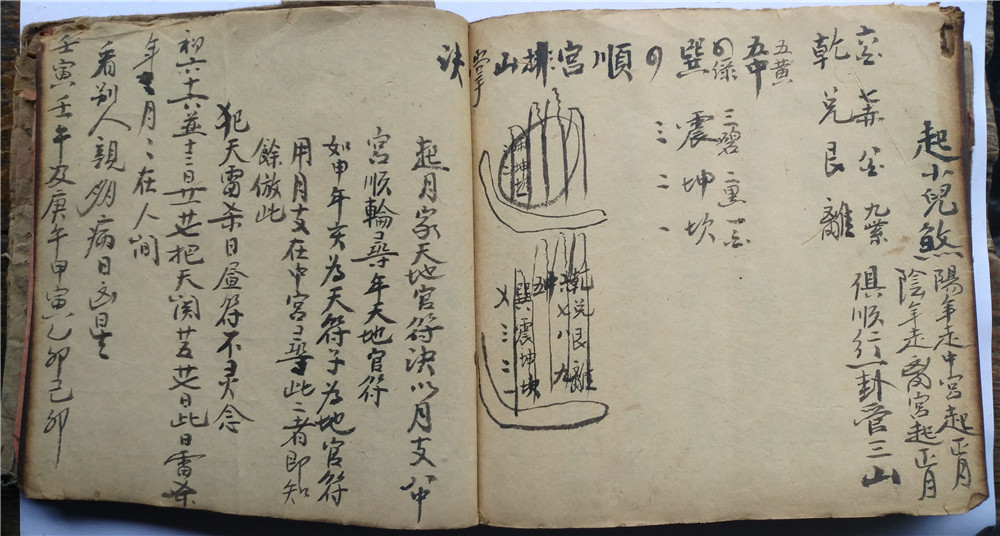 起小兒煞
陽年走中宮起正月
陰年走离宮起正月
俱順行一卦管三山
九紫
乾 兌 艮 離
五黃
五中
四綠
巽 震 坤 坎
三碧
三 二 一
順宮排山掌訣
乾兌艮離
六七八九
五中
巽震坤坎
三二
起月家天地官符決以月支入中
宮順輪尋年天地官符
如甲年亥為天符子為地官符
用月支在中宮尋此二者即知
餘倣此
犯天雷杀日昼符不灵念
初六十六並十三日廿廿把天関廿五廿日此日雷杀
年年月月在人間
看別人親眀病日凶是
壬寅壬午及庚午甲寅乙卯己卯